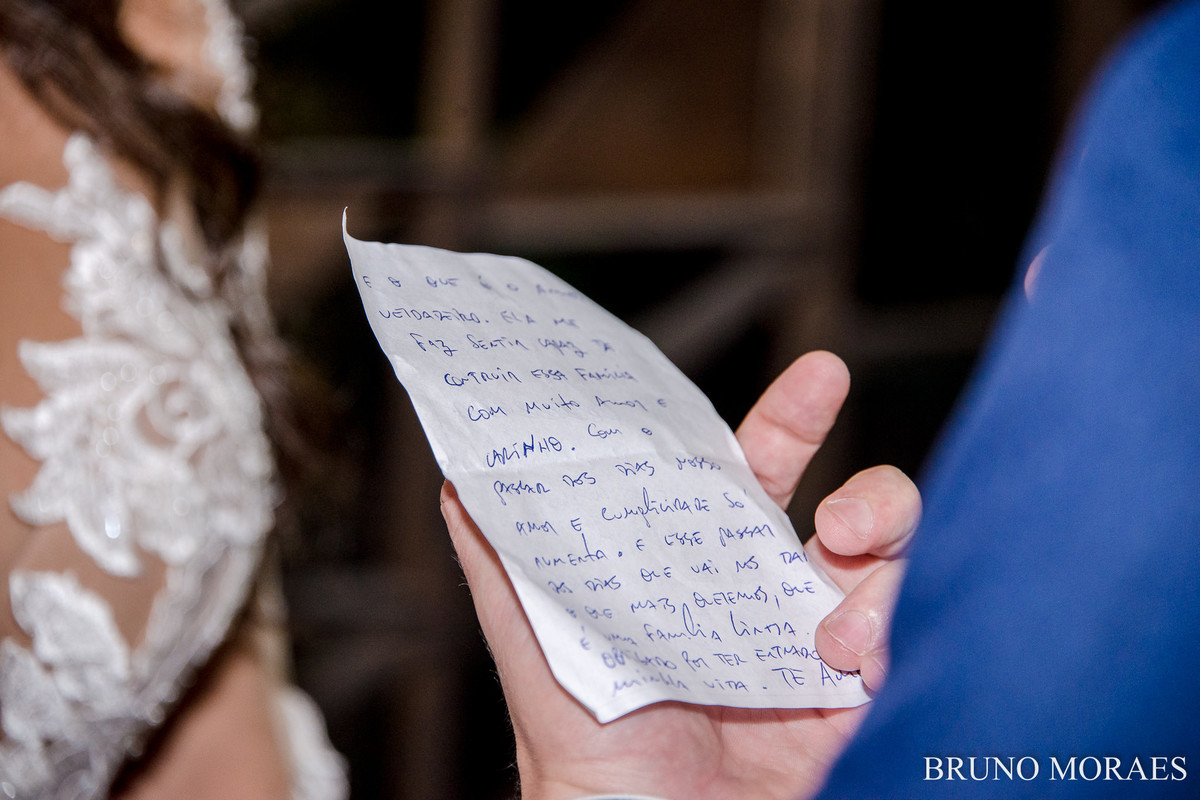 E O QUE É O AMOR
VERDADEIRO. ELA ME
FAZ SENTIR CAPAZ DE
CONTRUIR ESSA FAMÍLIA
COM MUITO AMOR E
CARINHO. COM O
PASSAR DOS DIAS NOSSO
AMOR E CUMPLICIDADE SÓ
AUMENTA. E ESSE PASSAR
DOS DIAS QUE VAI NOS DAR
O QUE MAIS QUEREMOS, QUE
É UMA FAMÍLIA LINDA.
OBRIGADO POR TER ENTRADO
MINHA VIDA. TE AM
BRUNO MORAES